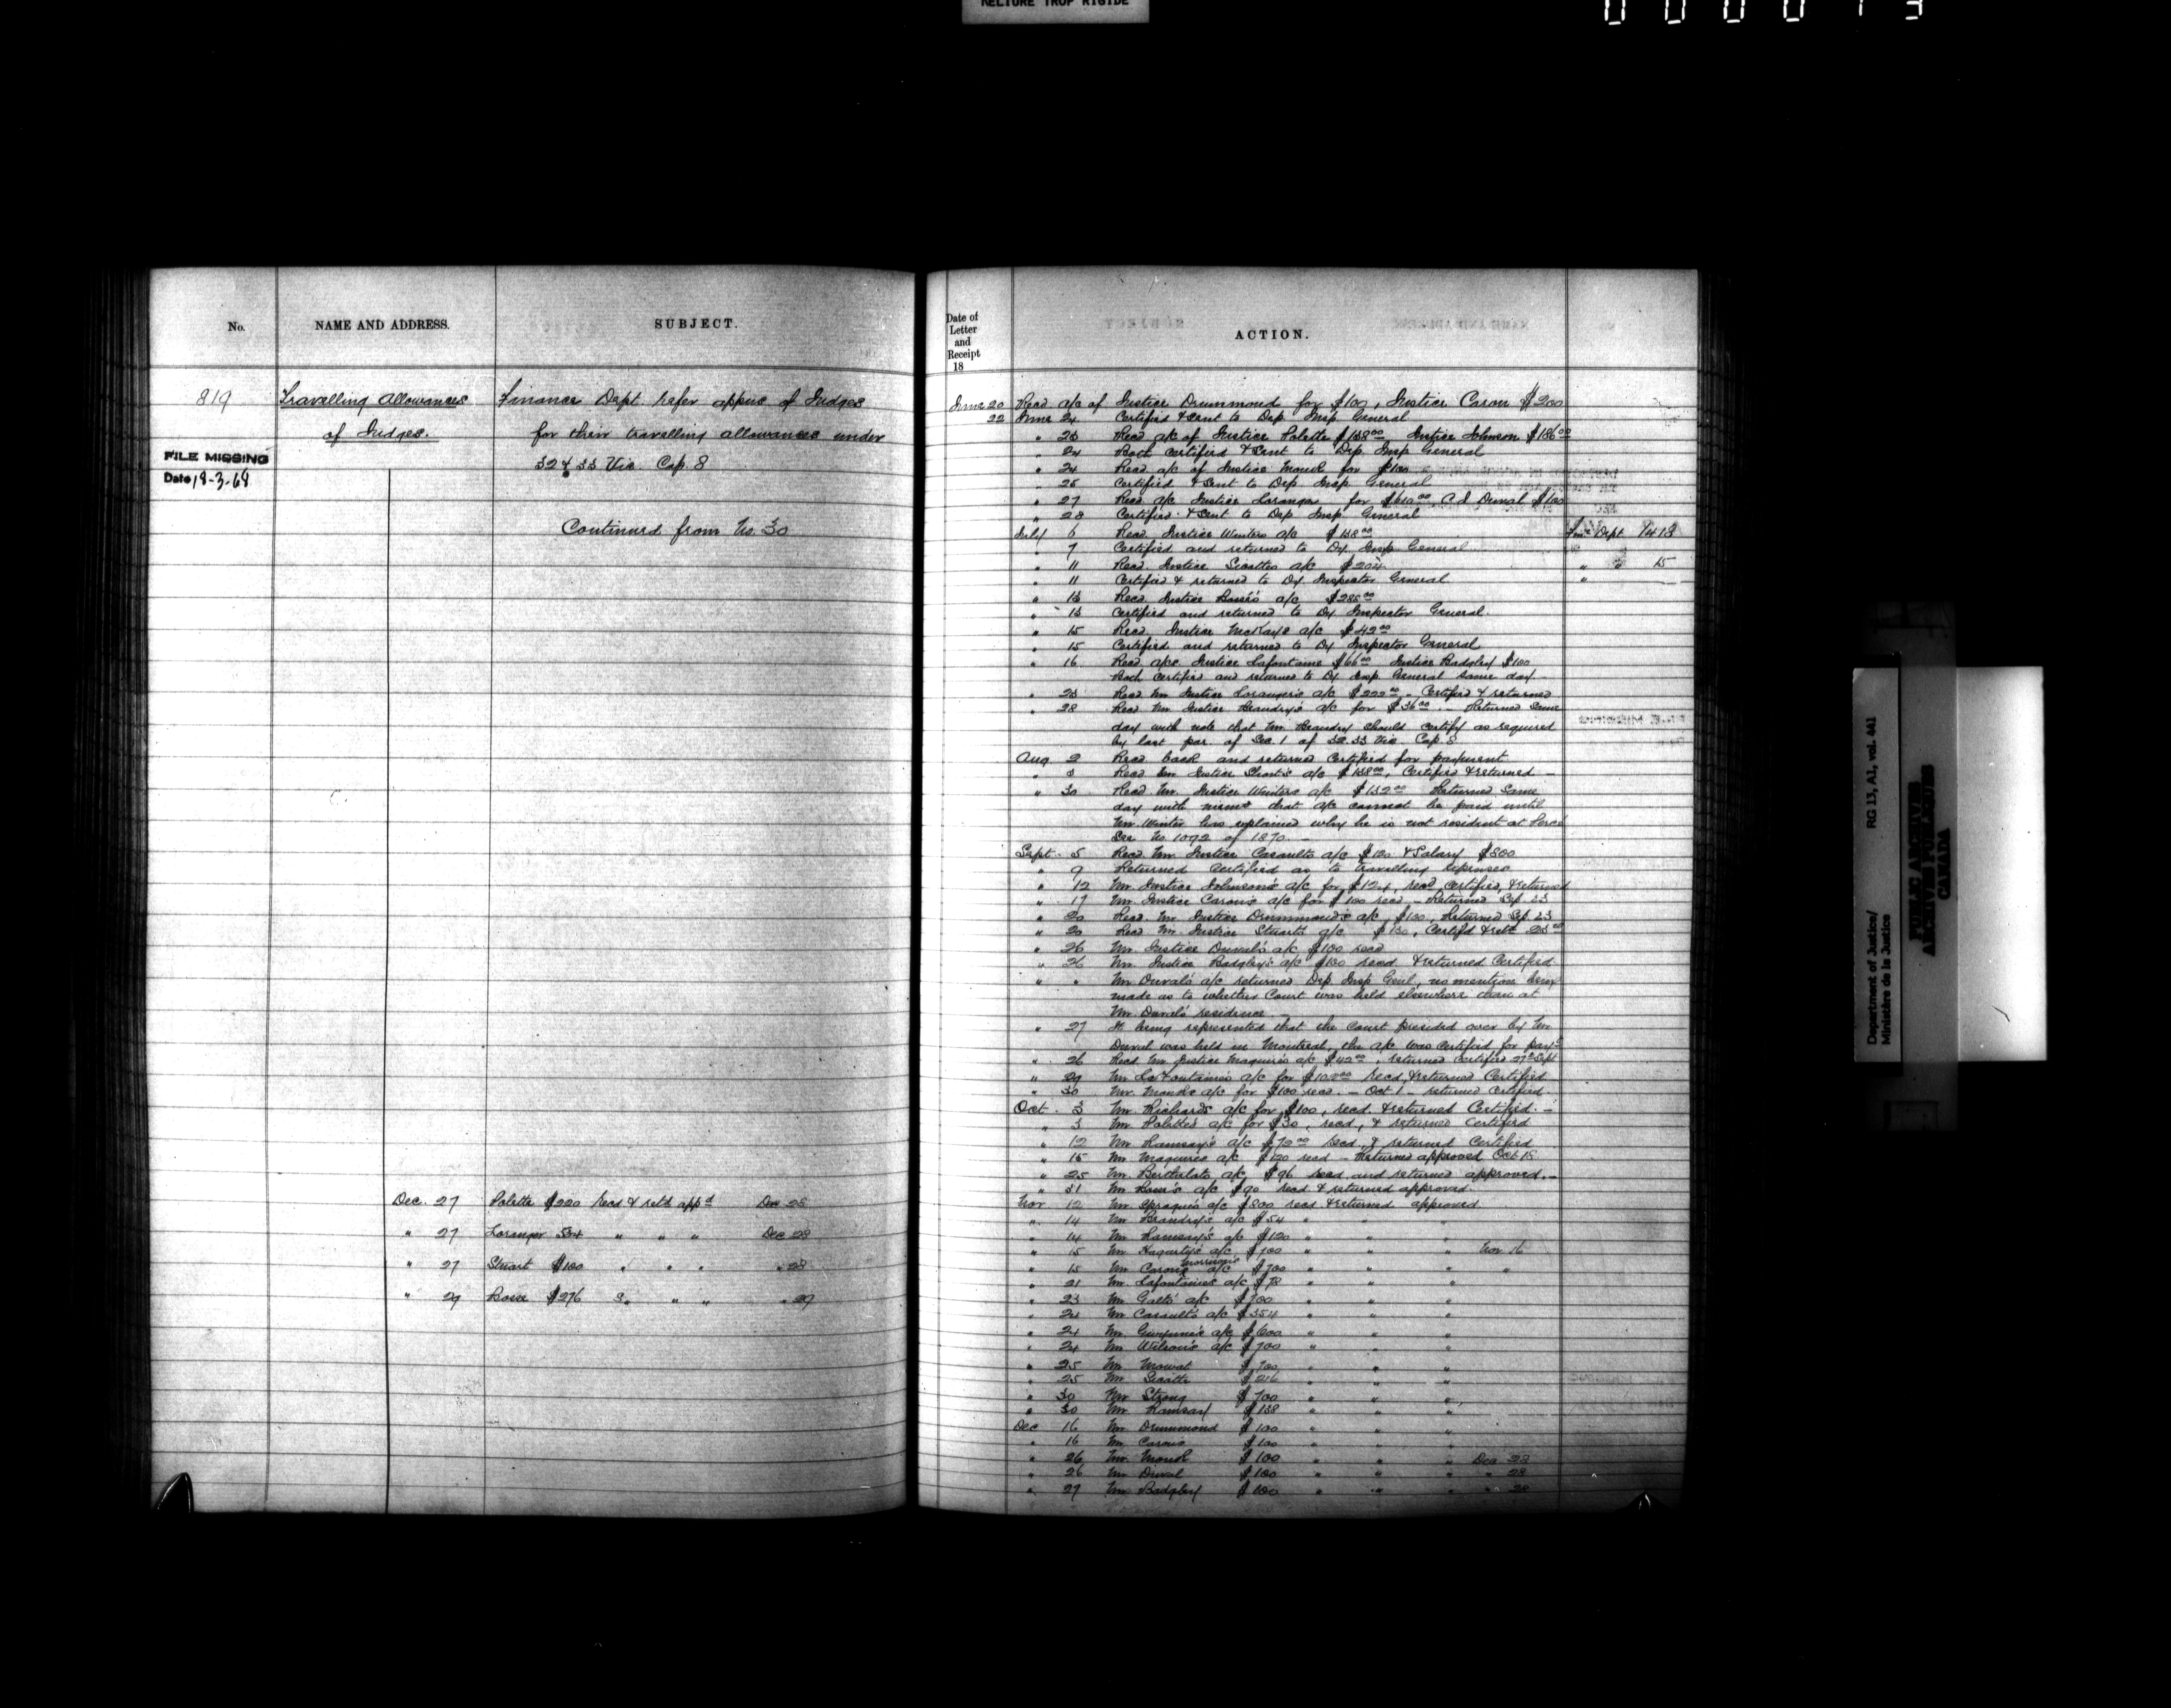 RELIURE TROP RIGIDE
No.
NAME AND ADDRESS.
SUBJECT.
819
Travelling Allowances
of Judges.
FILE MISSING
Date 18-3-68
Finance Dept refer appns of Judges
for their travelling allowances under
32 & 33 Vic Cap. 8
Continued from No. 30
Dec. 27 Polette $220 recd & retd appd Dec 28
" 27 Loranger " " " Dec 28
" 27 Stuart $100 " " " " 28
" 29 Bossé $276 " " " 29
Date of
Letter
and
Receipt
18
ACTION.
June 20 Recd a/c of Justice Drummond for $100, Justice Caron $200
22 June 24 Certified & sent to Dep Insp General
" 23 Recd a/c of Justice Polette $138 00 Justice Johnson $186 00
" 24 Both certified & sent to Dep Insp General
" 24 Recd a/c of Justice Monck for $100
" 25 Certified & sent to Dep Insp General
" 27 Recd a/c Justice Loranger for C J Duval $100
" 28 Certified & sent to Dep Insp General
July 6 Recd Justice Winters a/c $138 00
" 7 Certified and returned to Dy Insp General
" 11 Recd Justice Sicottes a/c $204
" 11 Certified & returned to Dy Inspector General
" 13 Recd Justice Bossé's a/c
" 13 Certified and returned to Dy Inspector General
" 15 Recd Justice McKays a/c $42 00
" 15 Certified and returned to Dy Inspector General
" 16 Recd a/cs Justice Lafontaine $66 00 Justice Badgley $100
Both certified and returned to Dy Insp General same day
" 23 Recd Mr Justice Loranger's a/c $222 00 - Certified & returned
" 28 Recd Mr Justice Beaudry's a/c for $36 00 - Returned same
day with note that Mr Beaudry should certify as required
by last par. of Sec. 1 of 32.33 Vic Cap 8
Aug 2 Recd back and returned certified for payment
" 3 Recd Mr Justice Short's a/c $138 00, Certified & returned -
" 30 Recd Mr. Justice Winters a/c $132 00 Returned same
day with memo that a/c cannot be paid until
Mr Winter has explained why he is not resident at Percé
See No. 1092 of 1870 -
Sept. 5 Recd Mr. Justice Casaults a/c $120 & Salary $800
" 9 Returned certified as to travelling expenses
" 12 Mr Justice Johnson's a/c for $124, recd certified, & returned
" 17 Mr. Justice Caron's a/c for $100 recd - Returned Sep 23
" 20 Recd Mr Justice Drummond's a/c $100, Returned Sep. 23
" 20 Recd Mr. Justice Stuarts a/c Certifd & retd
" 26 Mr Justice Duval's a/c $100 recd
" 26 Mr Justice Badgley's a/c $100 recd & returned certified
" " Mr Duval's a/c returned Dep Insp Genl, no mention being
made as to whether Court was held elsewhere than at
Mr Duval's residence -
" 27 It being represented that the Court presided over by Mr
Duval was held in Montreal, the a/c was certified for payt
" 26 Recd Mr Justice Maguire's a/c $42 00, returned certified 27 Sept
" 29 Mr Lafontaine's a/c for recd, & returned Certified
" 30 Mr Monck's a/c for $100 recd. - Oct 1 - returned certified
Oct. 3 Mr Richards a/c for $100, recd & returned Certified. -
" 3 Mr Polettes a/c for $30, recd, & returned Certified
" 12 Mr Ramsay's a/c $72 00 recd, & returned Certified
" 15 Mr Maguires a/c $120 recd - Returned approved Oct 18
" 25 Mr Berthelots a/c $96 recd and returned approved. -
" 31 Mr Bossé's a/c $90 recd & returned approved
Nov 12 Mr Spragge's a/c $200 recd & returned approved
" 14 Mr Beaudry's a/c $54 " " "
" 14 Mr Ramsay's a/c $120 " " "
" 15 Mr Hagarty's a/c $100 " " " Nov 16
" 15 Mr Morrison's a/c $700 " " " "
" 21 Mr Lafontaines a/c $78 " " "
" 23 Mr Galt's a/c $700 " " "
" 24 Mr Casault's a/c $354 " " "
" 24 Mr Gwynne's a/c $600 " " "
" 24 Mr Wilson's a/c $700 " " "
" 25 Mr Mowat $700 " " "
" 25 Mr Sicotte $216 " " "
" 30 Mr Strong $700 " " "
" 30 Mr Ramsay $138 " " "
Dec 16 Mr Drummond $100 " " "
" 16 Mr Caron $100 " " "
" 26 Mr Monck $100 " " " Dec 28
" 26 Mr Duval $100 " " " " 28
" 27 Mr Badgley $100 " " " " 28
Fin Dept
" " 15
Department of Justice/
Ministère de la Justice
RG 13, A1, vol. 441
PUBLIC ARCHIVES
ARCHIVES PUBLIQUES
CANADA